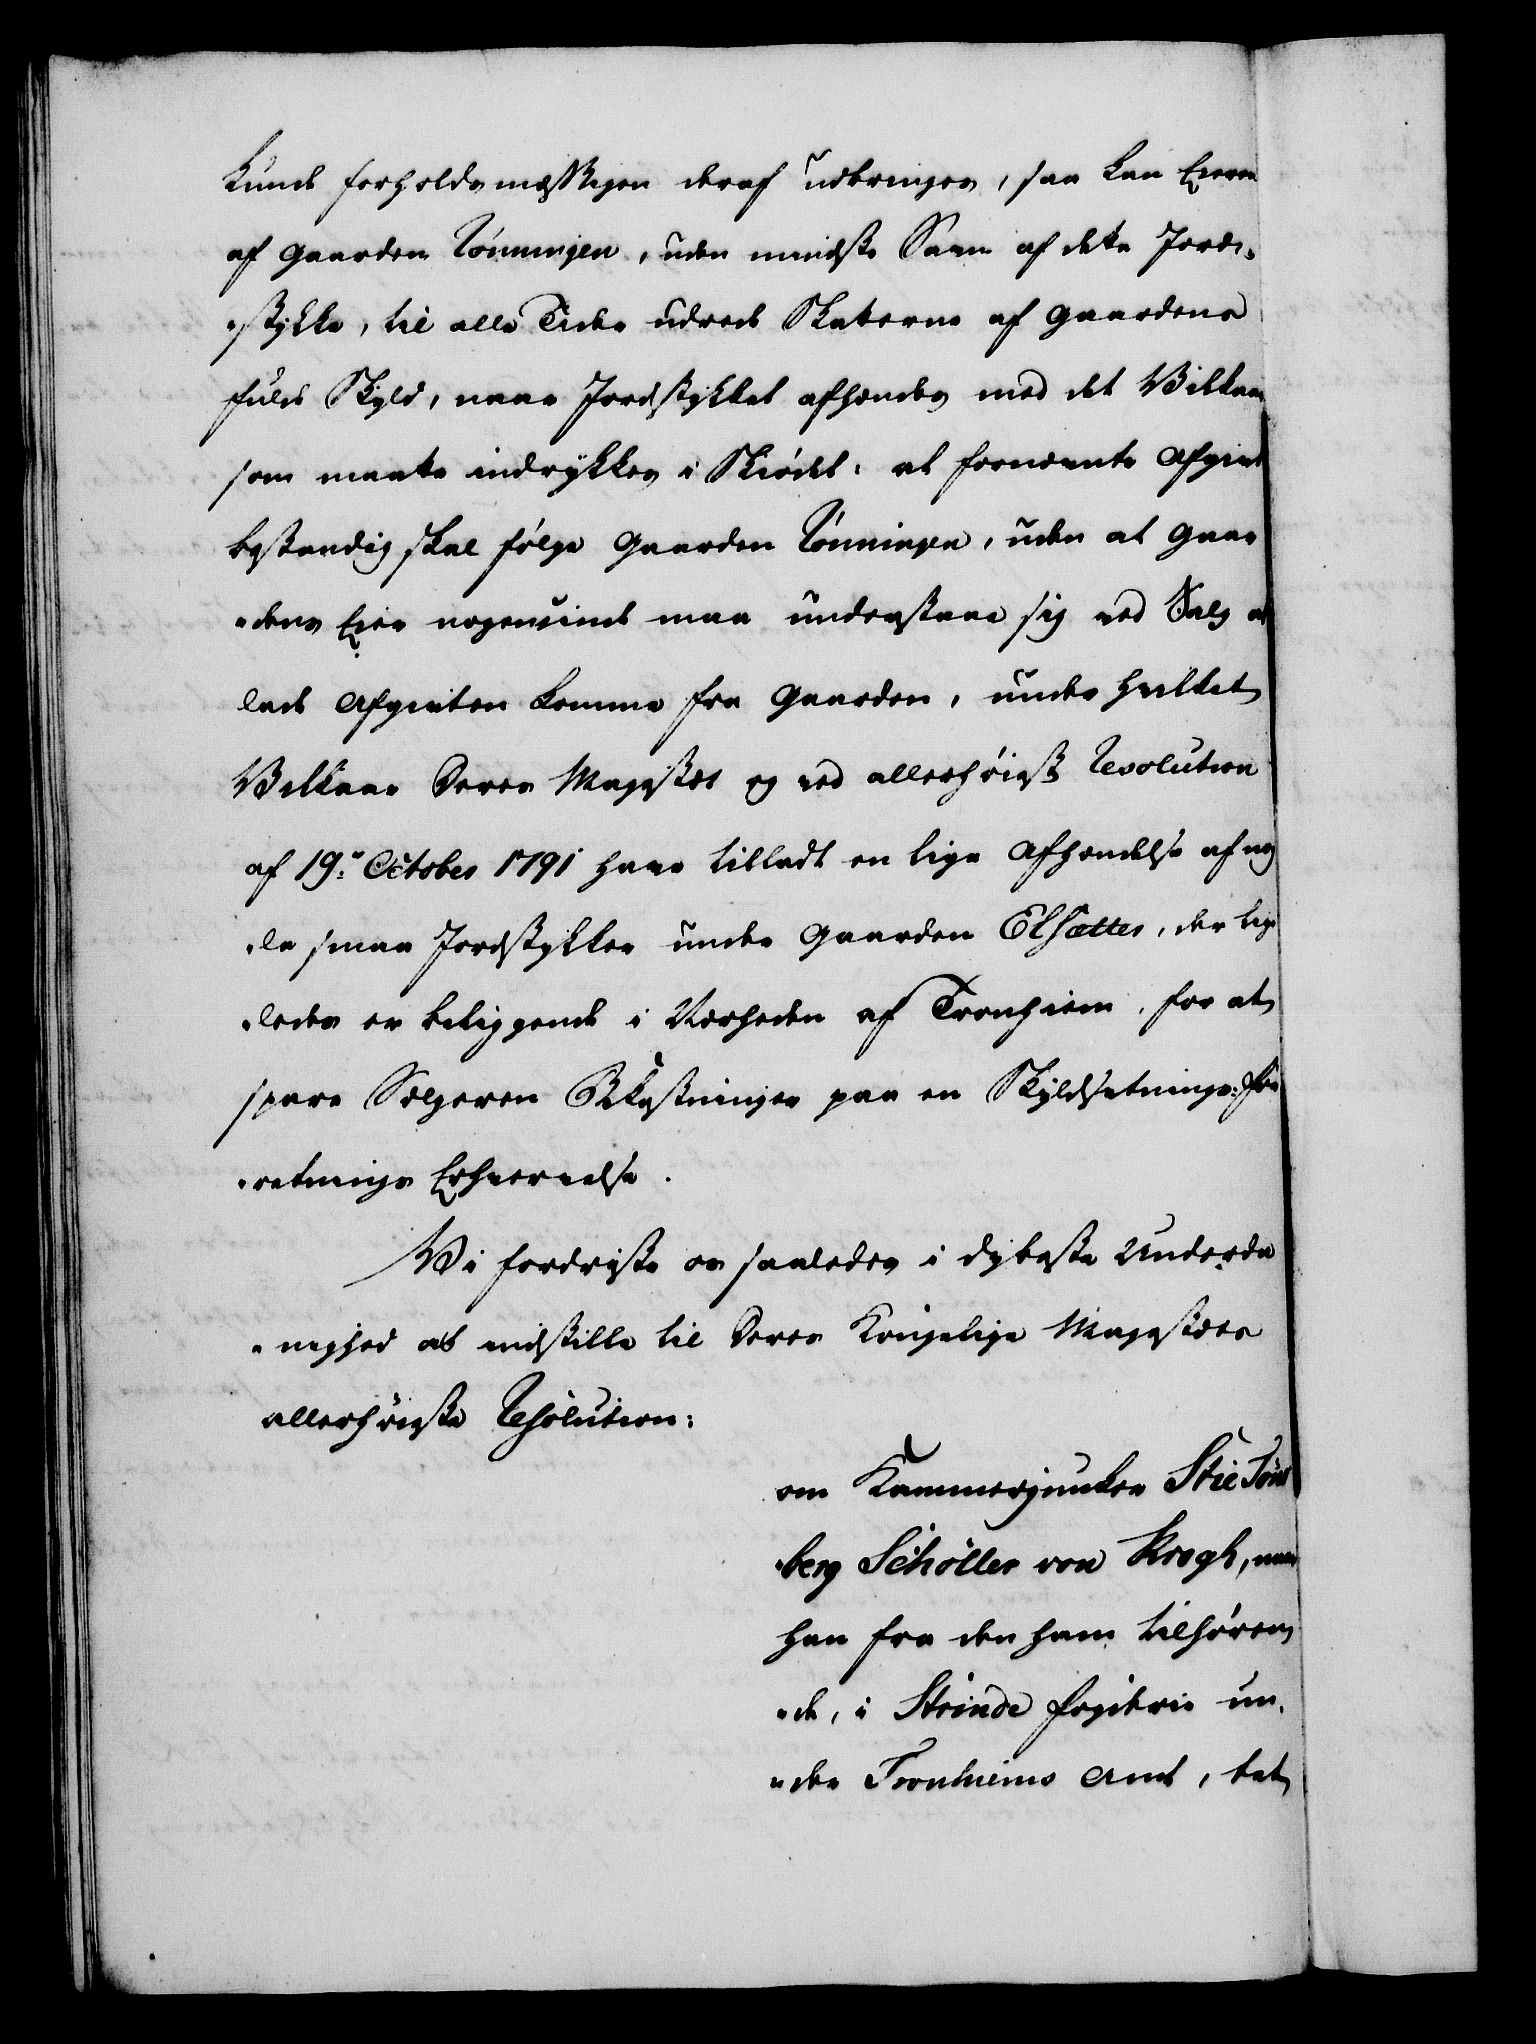 kunde forholdsmæssigen deraf udbringes, saa kan Eieren
af Gaarden Rönningen, uden mindste Savn af dette Jord-
-stykke, til alle Tider udrede Skatterne af Gaardens
fulde Skyld, naar Jordstykket afhændes med det Vilkaar
som maatte indrykkes i Skiödet: at fornævnte Afgivt
bestandig skal fölge Gaarden Rönningen, uden at Gaar
-dens Eier nogensinde maa understaae sig ved Salg at
lade Afgivten komme fra Gaarden, under hvilket
Vilkaar Deres Majestæt og ved allerhöieste Resolution
af 19.de October 1791 have tilladt en lige Afhændelse af nog
-le smaa Jordstykker under Gaarden Elsætter, der lige
-ledes er beliggende i Nærheden af Tronhiem, for at
spare Sælgeren Bekostninger paa en Skyldsætnings-For
-retnings Erhvervelse.
Vi fordriste os saaledes i dybeste Underda
-nighed at indstille til Deres Kongelige Majestæts
allerhöieste Resolution:
om Kammerjunker Stie Töns
-berg Schöller von Krogh, naar
han fra den ham tilhören
-de, i Strinde Fogderie un-
-der Tronhiems Amt, bel